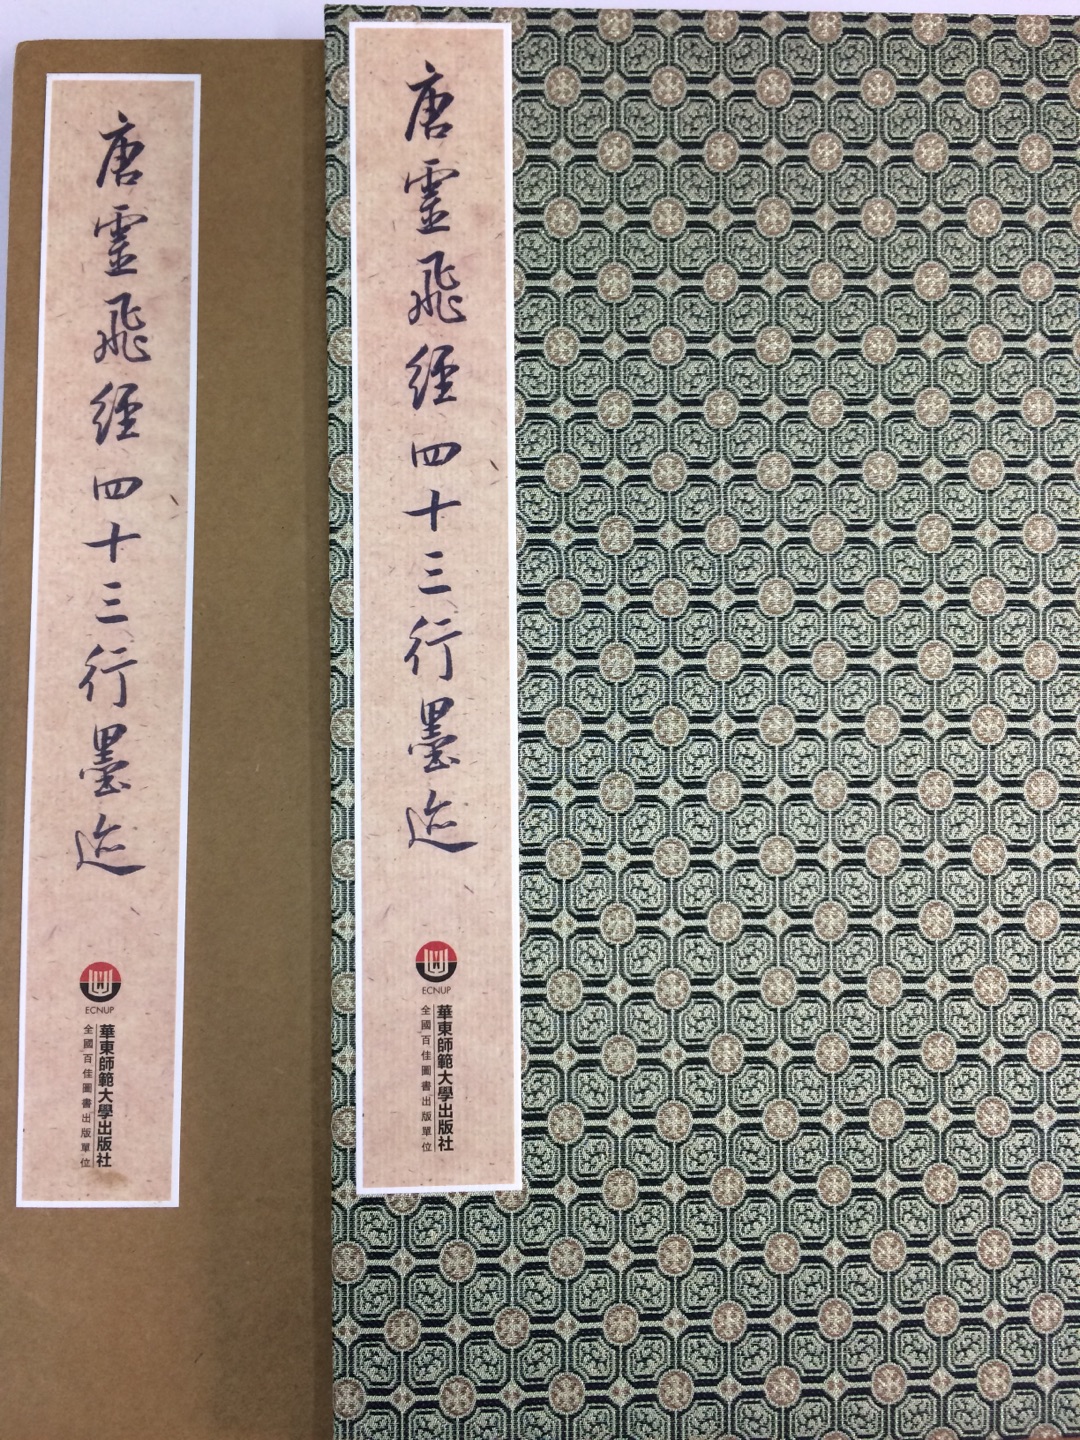 唐靈飛經四十三行墨迹
ECNUP
華東師範大學出版社
全國百佳圖書出版單位
唐靈飛經四十三行墨迹
ECNUP
華東師範大學出版社
全國百佳圖書出版單位